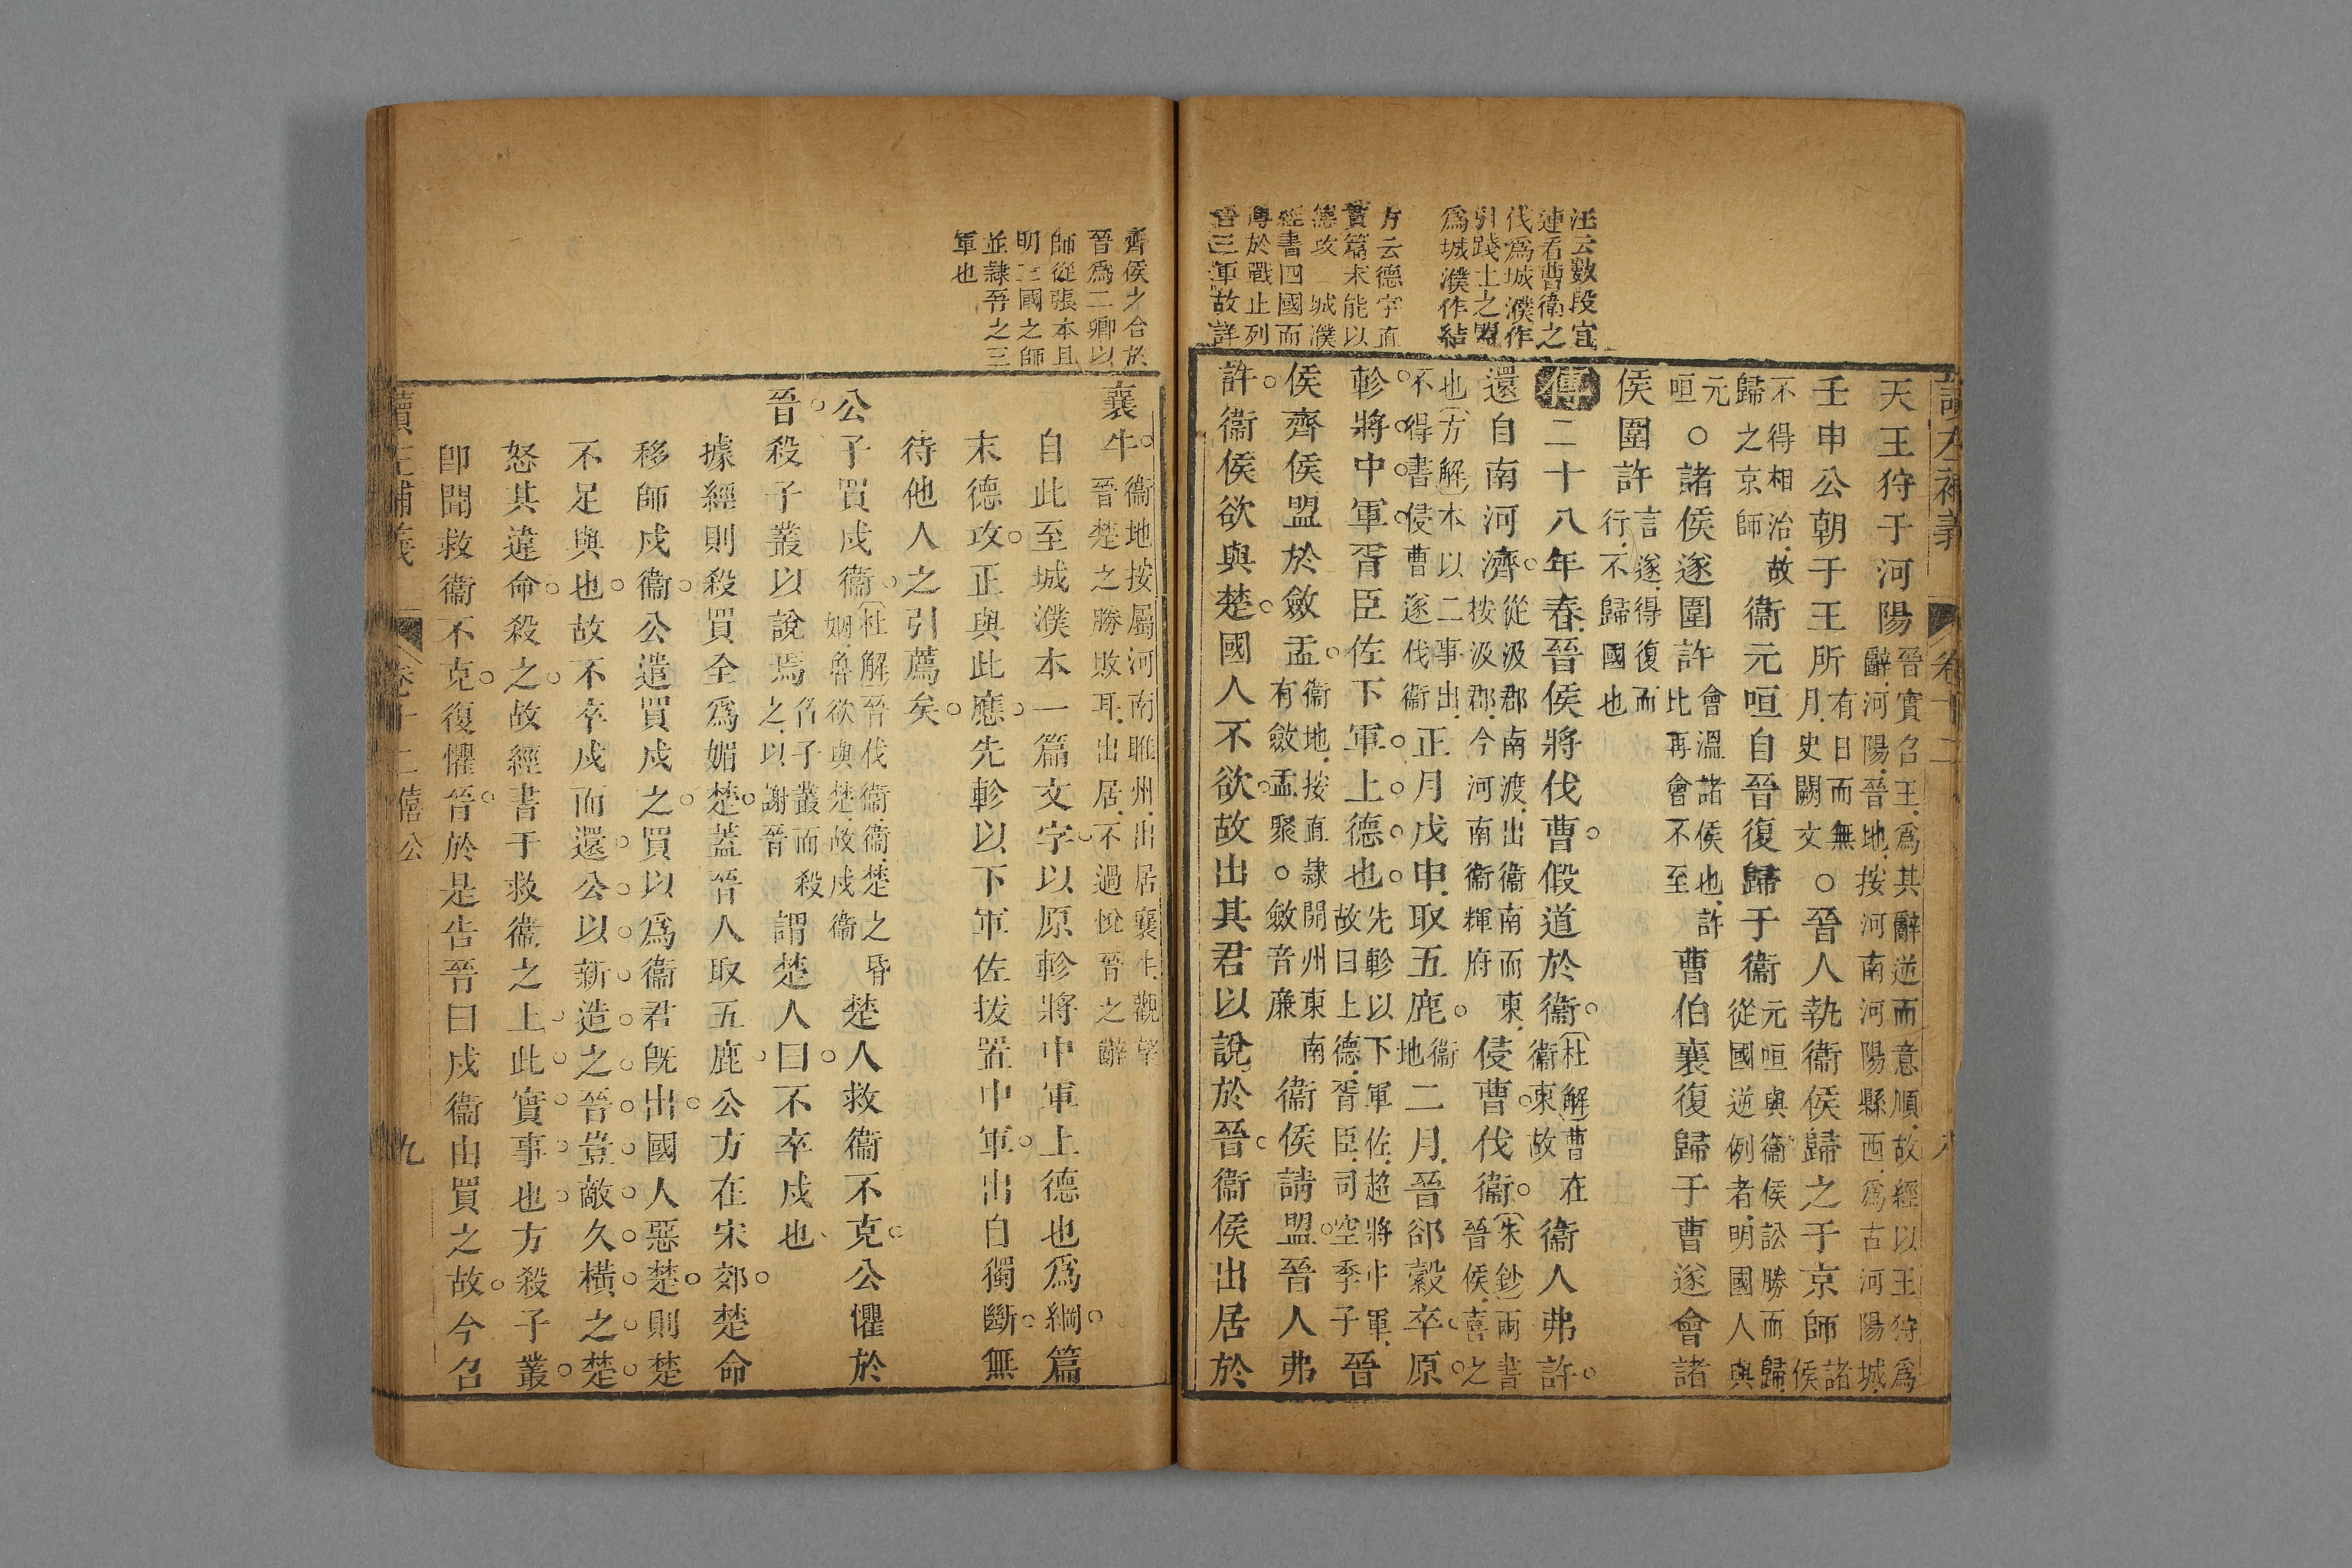 讀左補義 卷十二 八
汪云數段宜
連看曹衛之
伐爲城濮作
引踐土之盟
爲城濮作結
方云德字直
貫篇末能以
德攻一城濮
經書四國而
傳於戰止列
晉三軍故詳
天王狩于河陽晉實召王爲其辭逆而意順故經以王狩爲辭河陽晉地按河南河陽縣西爲古河陽城
壬申公朝于王所有日而無月史闕文○晉人執衛侯歸之于京師諸侯
不得相治故歸之京師衛元咺自晉復歸于衛元咺與衛侯訟勝而歸從國逆例者明國人與
元咺○諸侯遂圍許會溫諸侯也許比再會不至曹伯襄復歸于曹遂會諸
侯圍許言遂得復而行不歸國也
傳二十八年春晉侯將伐曹假道於衛杜解曹在衛東故衛人弗許
還自南河濟從汲郡南渡出衛南而東按汲郡今河南衛輝府侵曹伐衛朱鈔兩書晉侯喜之
也方解本以二事出不得書侵曹遂伐衛正月戊申取五鹿衛地二月晉郤縠卒原
軫將中軍胥臣佐下軍上德也先軫以下軍佐超將中軍故曰上德胥臣司空季子晉
侯齊侯盟於斂盂衛地按直隸開州東南有斂盂聚○斂音廉衛侯請盟晉人弗
許衛侯欲與楚國人不欲故出其君以說於晉衛侯出居於
齊侯之合於
晉爲二卿以
師從張本且
明三國之師
並隸晉之三
軍也
襄牛衛地按屬河南睢州出居襄牛觀望晉楚之勝敗耳出居不過悅晉之辭
自此至城濮本一篇文字以原軫將中軍上德也爲綱篇
末德攻正與此應先軫以下軍佐拔置中軍出自獨斷無
待他人之引薦矣
公子買戍衛杜解晉伐衛衛楚之昏姻魯欲與楚故戍衛楚人救衛不克公懼於
晉殺子叢以說焉召子叢而殺之以謝晉謂楚人曰不卒戍也
據經則殺買全爲媚楚蓋晉人取五鹿公方在宋郊楚命
移師戍衛公遣買戍之買以爲衛君旣出國人惡楚則楚
不足與也故不卒戍而還公以新造之晉豈敵久橫之楚
怒其違命殺之故經書于救衛之上此實事也方殺子叢
卽聞救衛不克復懼晉於是告晉曰戍衛由買之故今召
讀左補義 卷十二 僖公 九